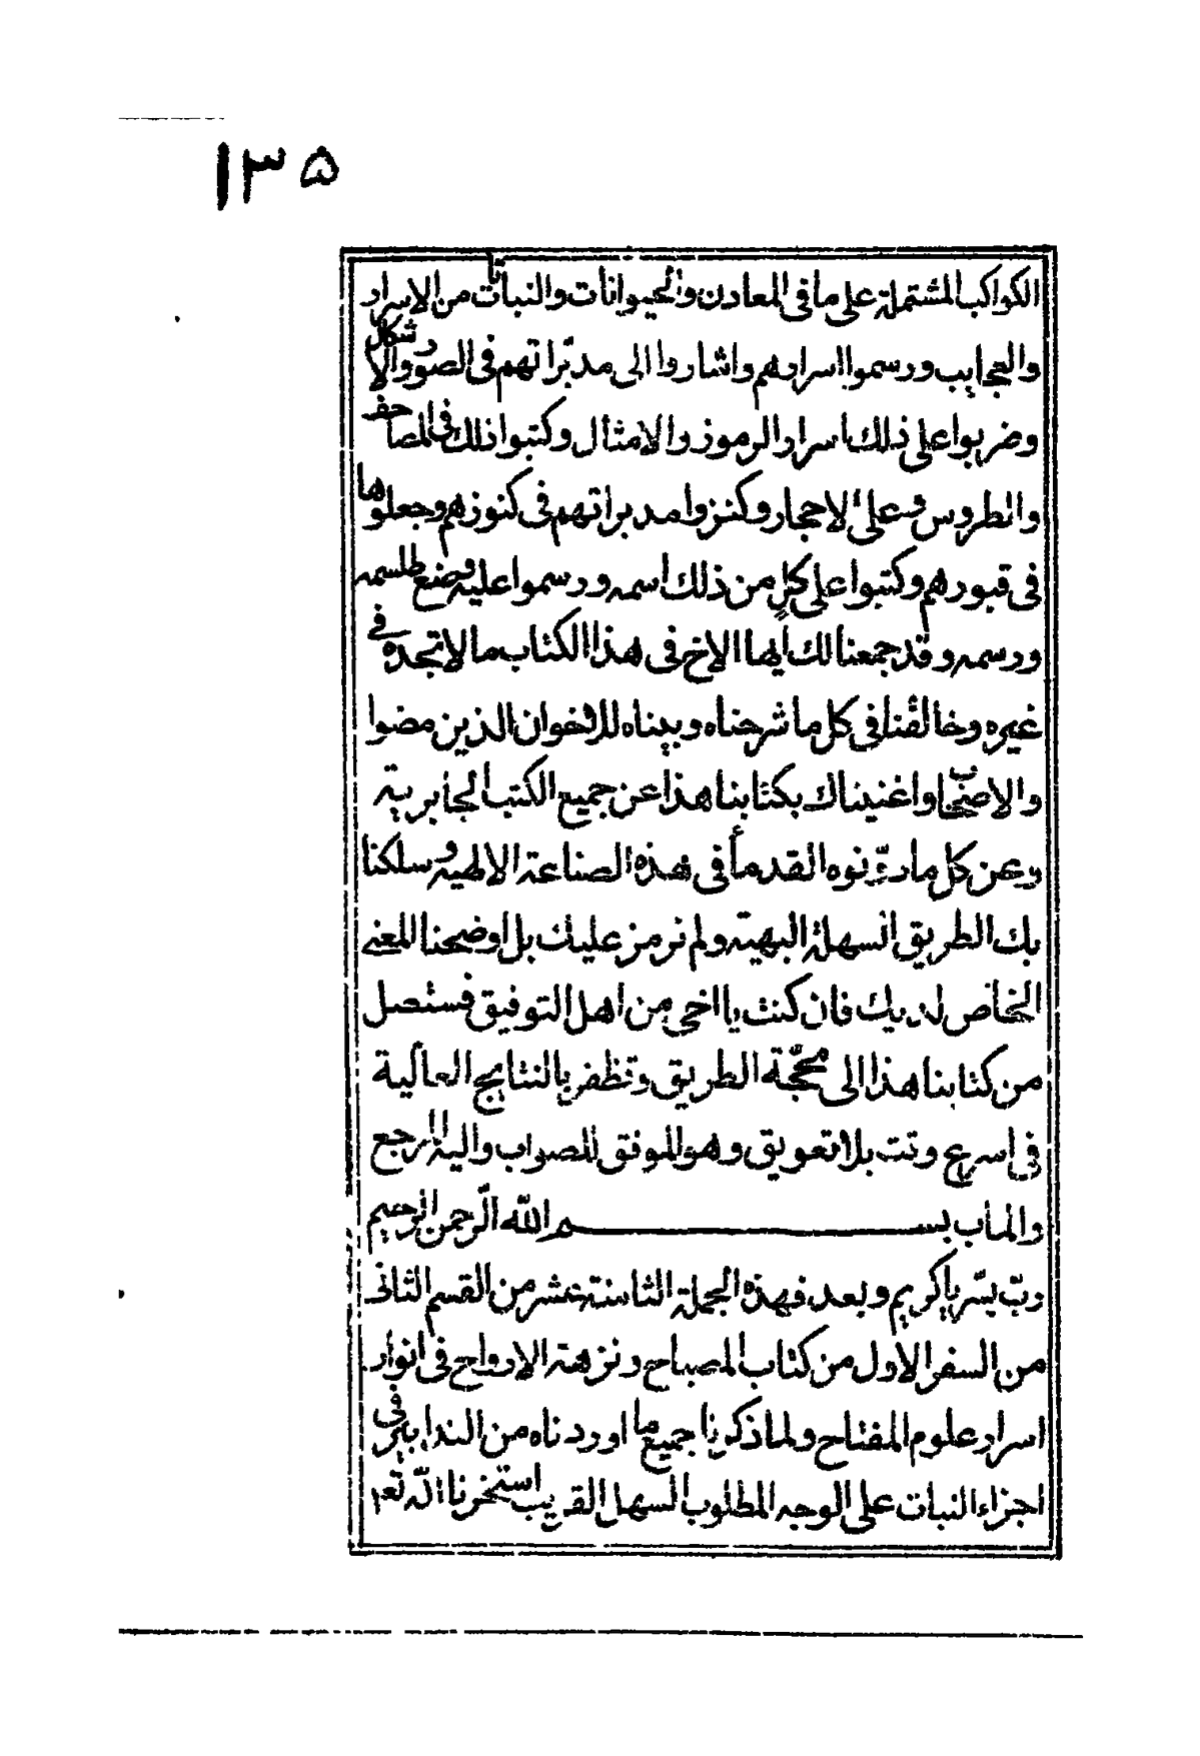 ١٣٥
الكواكب المشتملة على ما فى المعادن والحيوانات والنباتات من الاسرار
والعجايب ورسموا اسرارهم واشاروا الى مدبّراتهم فى الصور والاشكال
وضربوا على ذلك اسرار الرموز والامثال وكتبوا ذلك فى المصاحف
والطروس وعلى الاحجار وكنزوا مدبراتهم فى كنوزهم وجعلوها
فى قبورهم وكتبوا على كلٍ من ذلك اسمه ورسموا عليه وضع طلسمه
ورسمه وقد جمعنا لك ايها الاخ فى هذا الكتاب ما لا تجده فى
غيره وخالفنا فى كل ما شرحناه وبيناه للاخوان الذين مضوا
والاصحاب واغنيناك بكتابنا هذا عن جميع الكتب الجابرية
وعن كل ما دوّنوه القدمأ فى هذه الصناعة الالهية وسلكنا
بك الطريق السهلة البهية ولم نرمز عليك بل اوضحنا المعنى
الخاص لديك فان كنت يا اخى من اهل التوفيق فستصل
من كتابنا هذا الى محجّة الطريق وتظفر بالنتايج العالية
فى اسرع وقت بلا تعويق وهو الموفق للصواب واليه المرجع
والمأب بسم الله الرّحمن الرحيم
ربّ يسّر يا كريم وبعد فهذه الجملة الثامنة عشر من القسم الثانى
من السفر الاول من كتاب المصباح ونزهة الارواح فى انوار
اسرار علوم المفتاح ولما ذكرنا جميع ما اوردناه من التدابير فى
اجزاء النبات على الوجه المطلوب السهل القريب استخرنا الله تعم